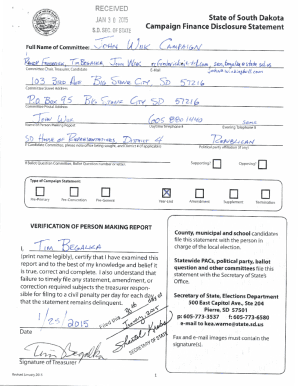 RECEIVED
JAN 26 2015
S.D. SEC. OF STATE
State of South Dakota
Campaign Finance Disclosure Statement
Full Name of Committee: JOHN WIIK CAMPAIGN
TIM BEGALKA JOHN WIIK
Committee Chair, Treasurer, Candidate E-Mail
103 BIG STONE CITY, SD 57216
Committee Street Address
P.O. BOX 95 BIG STONE CITY SD 57216
Committee Postal Address
JOHN WIIK 605 880 1440 SAME
Name of Person Making Report Daytime Telephone # Evening Telephone #
SD HOUSE OF REPRESENTATIVES DISTRICT 4 REPUBLICAN
If Candidate Committee, please indicate office being sought, and if district # if applicable Political party affiliation (if any)
Supporting? Opposing?
If Ballot Question Committee, Ballot Question number or letter
Type of Campaign Statement:
Pre-Primary Pre-Convention Pre-General Year-End Amendment Supplement Termination
VERIFICATION OF PERSON MAKING REPORT
I, TIM BEGALKA
(print name legibly), certify that I have examined this
report and to the best of my knowledge and belief it
is true, correct and complete. I also understand that
failure to timely file any statement, amendment, or
correction required subjects the treasurer responsible
for filing to a civil penalty per day for each day
that the statement remains delinquent.
1/25/2015
Date
Filed this
day of
January 2015
SECRETARY OF STATE
Tim Begalka
Signature of Treasurer
County, municipal and school candidates
file this statement with the person in
charge of the local election.
Statewide PACs, political party, ballot
question and other committees file this
statement with the Secretary of State's
Office.
Secretary of State, Elections Department
500 East Capitol Ave, Ste 204
Pierre, SD 57501
p: 605-773-3537 f: 605-773-6580
e-mail to kea.warne@state.sd.us
Fax and e-mail images must contain the
signature(s).
Revised January 2011
1